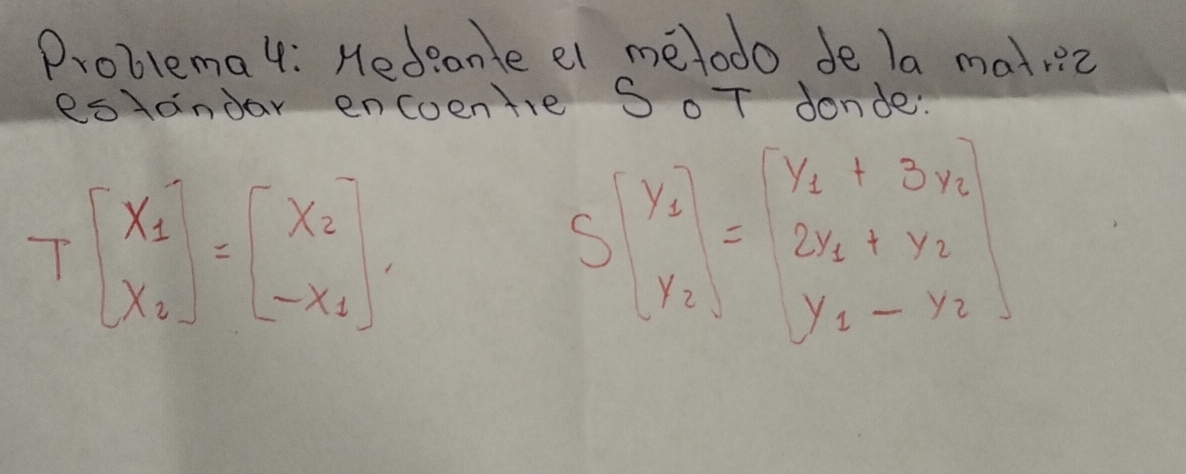 Problema 4: Mediante el método de la matriz
estándar encuentre S o T donde:
T [X1 X2] = [X2 -X1], S [Y1 Y2] = [Y1 + 3Y2 2Y1 + Y2 Y1 - Y2]